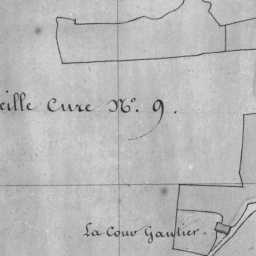 eille Cure N.º 9.
La Cour Gautier.